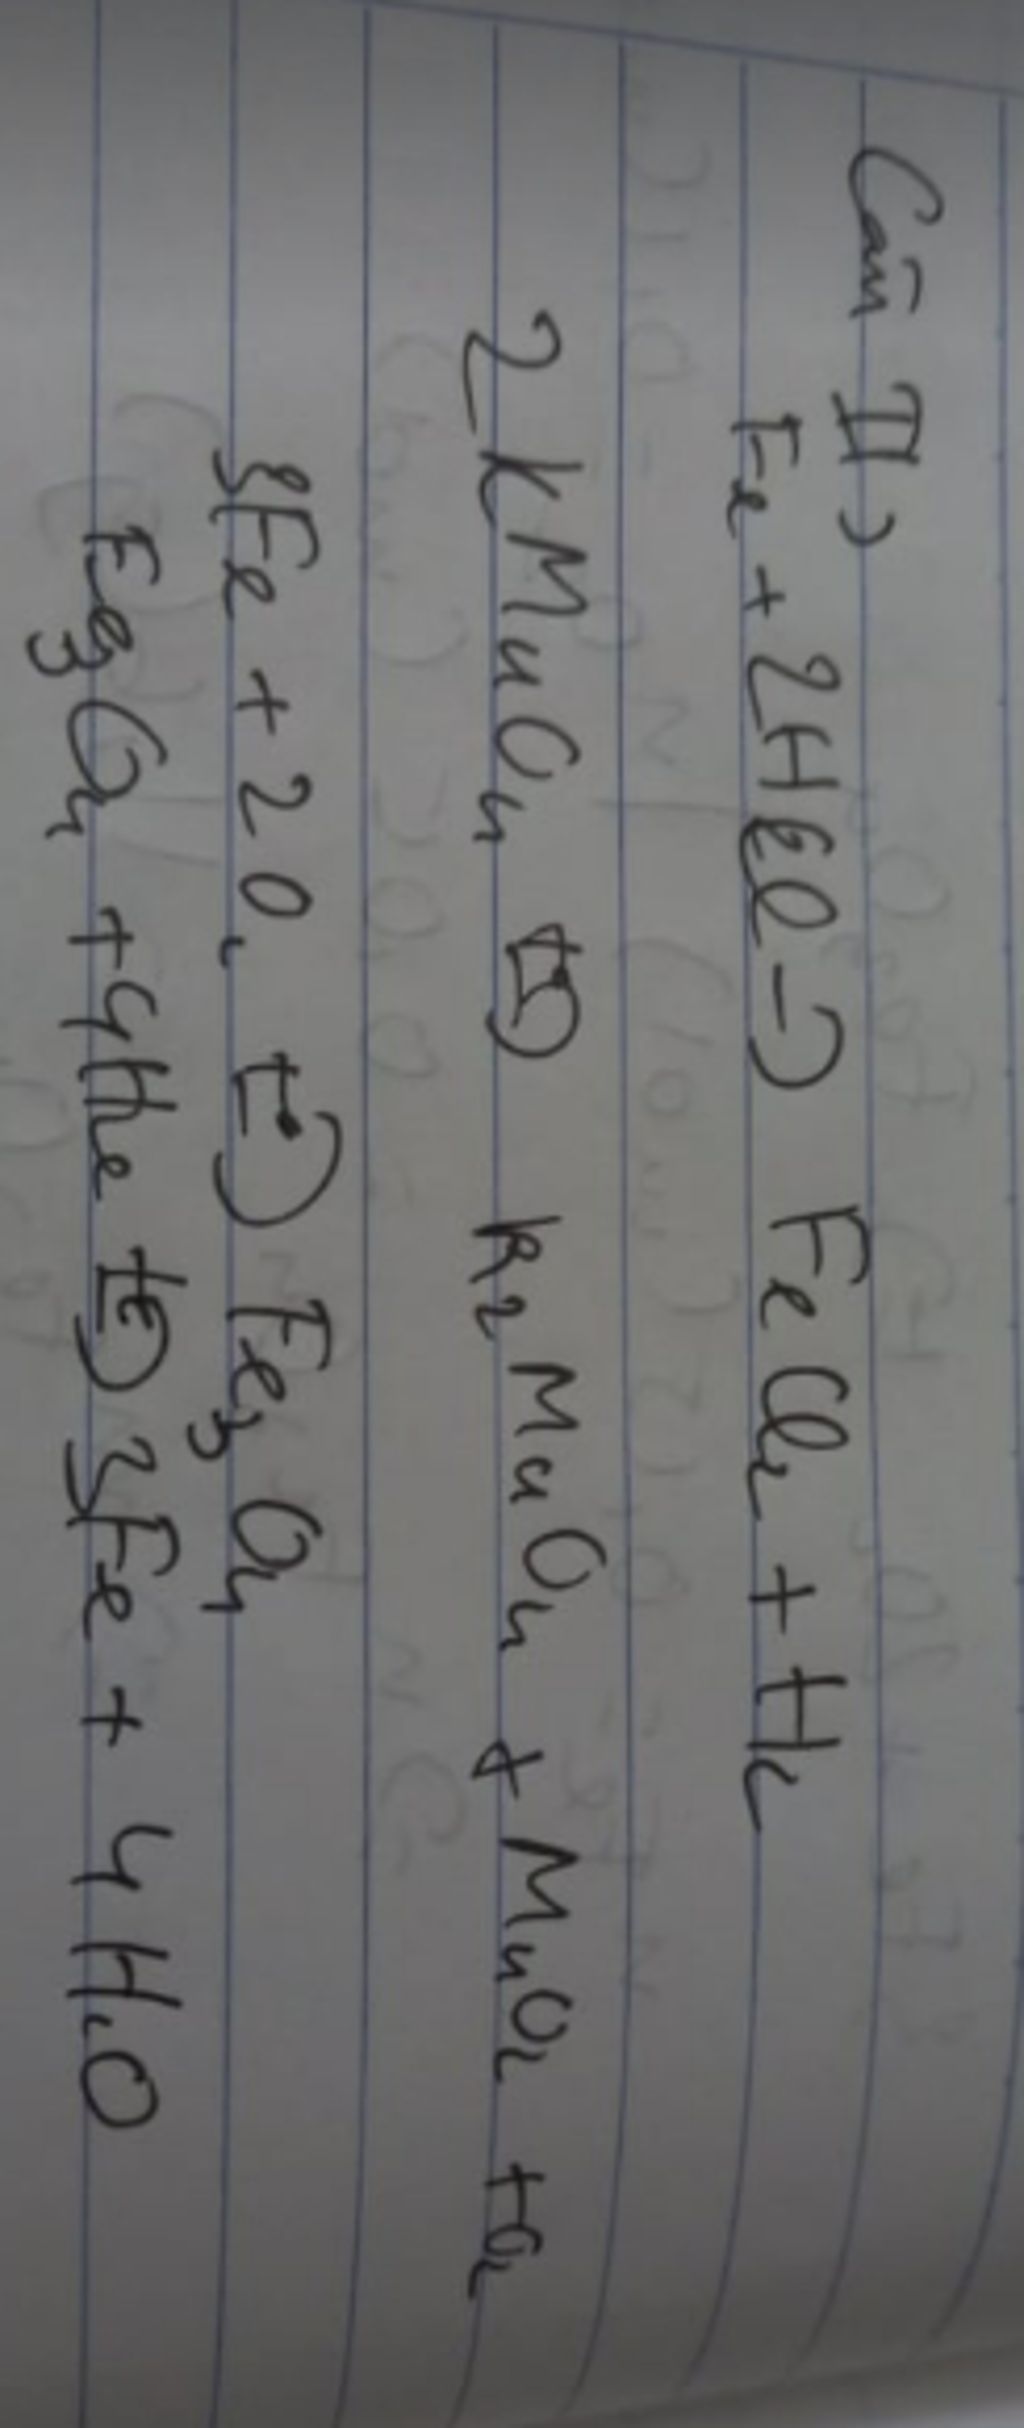 Câu II)
Fe + 2HCl -> FeCl₂ + H₂
2KMnO₄ t°-> K₂MnO₄ + MnO₂ + O₂
3Fe + 2O₂ t°-> Fe₃O₄
Fe₃O₄ + 4H₂ t°-> 3Fe + 4H₂O